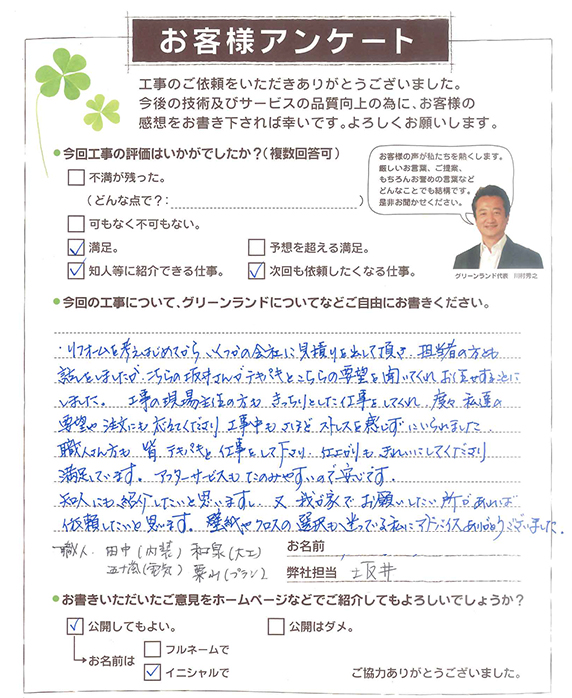 お客様アンケート
工事のご依頼をいただきありがとうございました。
今後の技術及びサービスの品質向上の為に、お客様の
感想をお書き下されば幸いです。よろしくお願いします。
●今回工事の評価はいかがでしたか？（複数回答可）
不満が残った。
（どんな点で？：）
可もなく不可もない。
満足。
予想を超える満足。
知人等に紹介できる仕事。
次回も依頼したくなる仕事。
お客様の声が私たちを熱くします。
厳しいお言葉、ご提案、
もちろんお誉めの言葉など
どんなことでも結構です。
是非お聞かせください。
グリーンランド代表 川村秀之
●今回の工事について、グリーンランドについてなどご自由にお書きください。
・リフォームを考えはじめてから いくつかの会社に見積りを出して頂き 担当者の方とも
話しをしましたが こちらの坂井さんがテキパキとこちらの要望を聞いてくれ お任せすることに
しました。 工事の現場主任の方も きっちりとした仕事をしてくれ 度々 私達の
要望や注文にも応えてくださり 工事中も さほど ストレスを感じずにいられました
職人さん方も 皆 テキパキと仕事をして下さり 仕上がりも きれいにしてくださり
満足しています。 アフターサービスも たのみやすいので安心です。
知人にも紹介したいと思いますし 又 我が家で お願いしたい所があれば
依頼したいと思います。 壁紙やクロスの選択も 迷っている私にアドバイスありがとうございました.
職人. 田中(内装) 和泉(大工)
五十嵐(電気) 葉山(プラン)
お名前
弊社担当 坂井
●お書きいただいたご意見をホームページなどでご紹介してもよろしいでしょうか？
公開してもよい。
公開はダメ。
お名前は
フルネームで
イニシャルで
ご協力ありがとうございました。